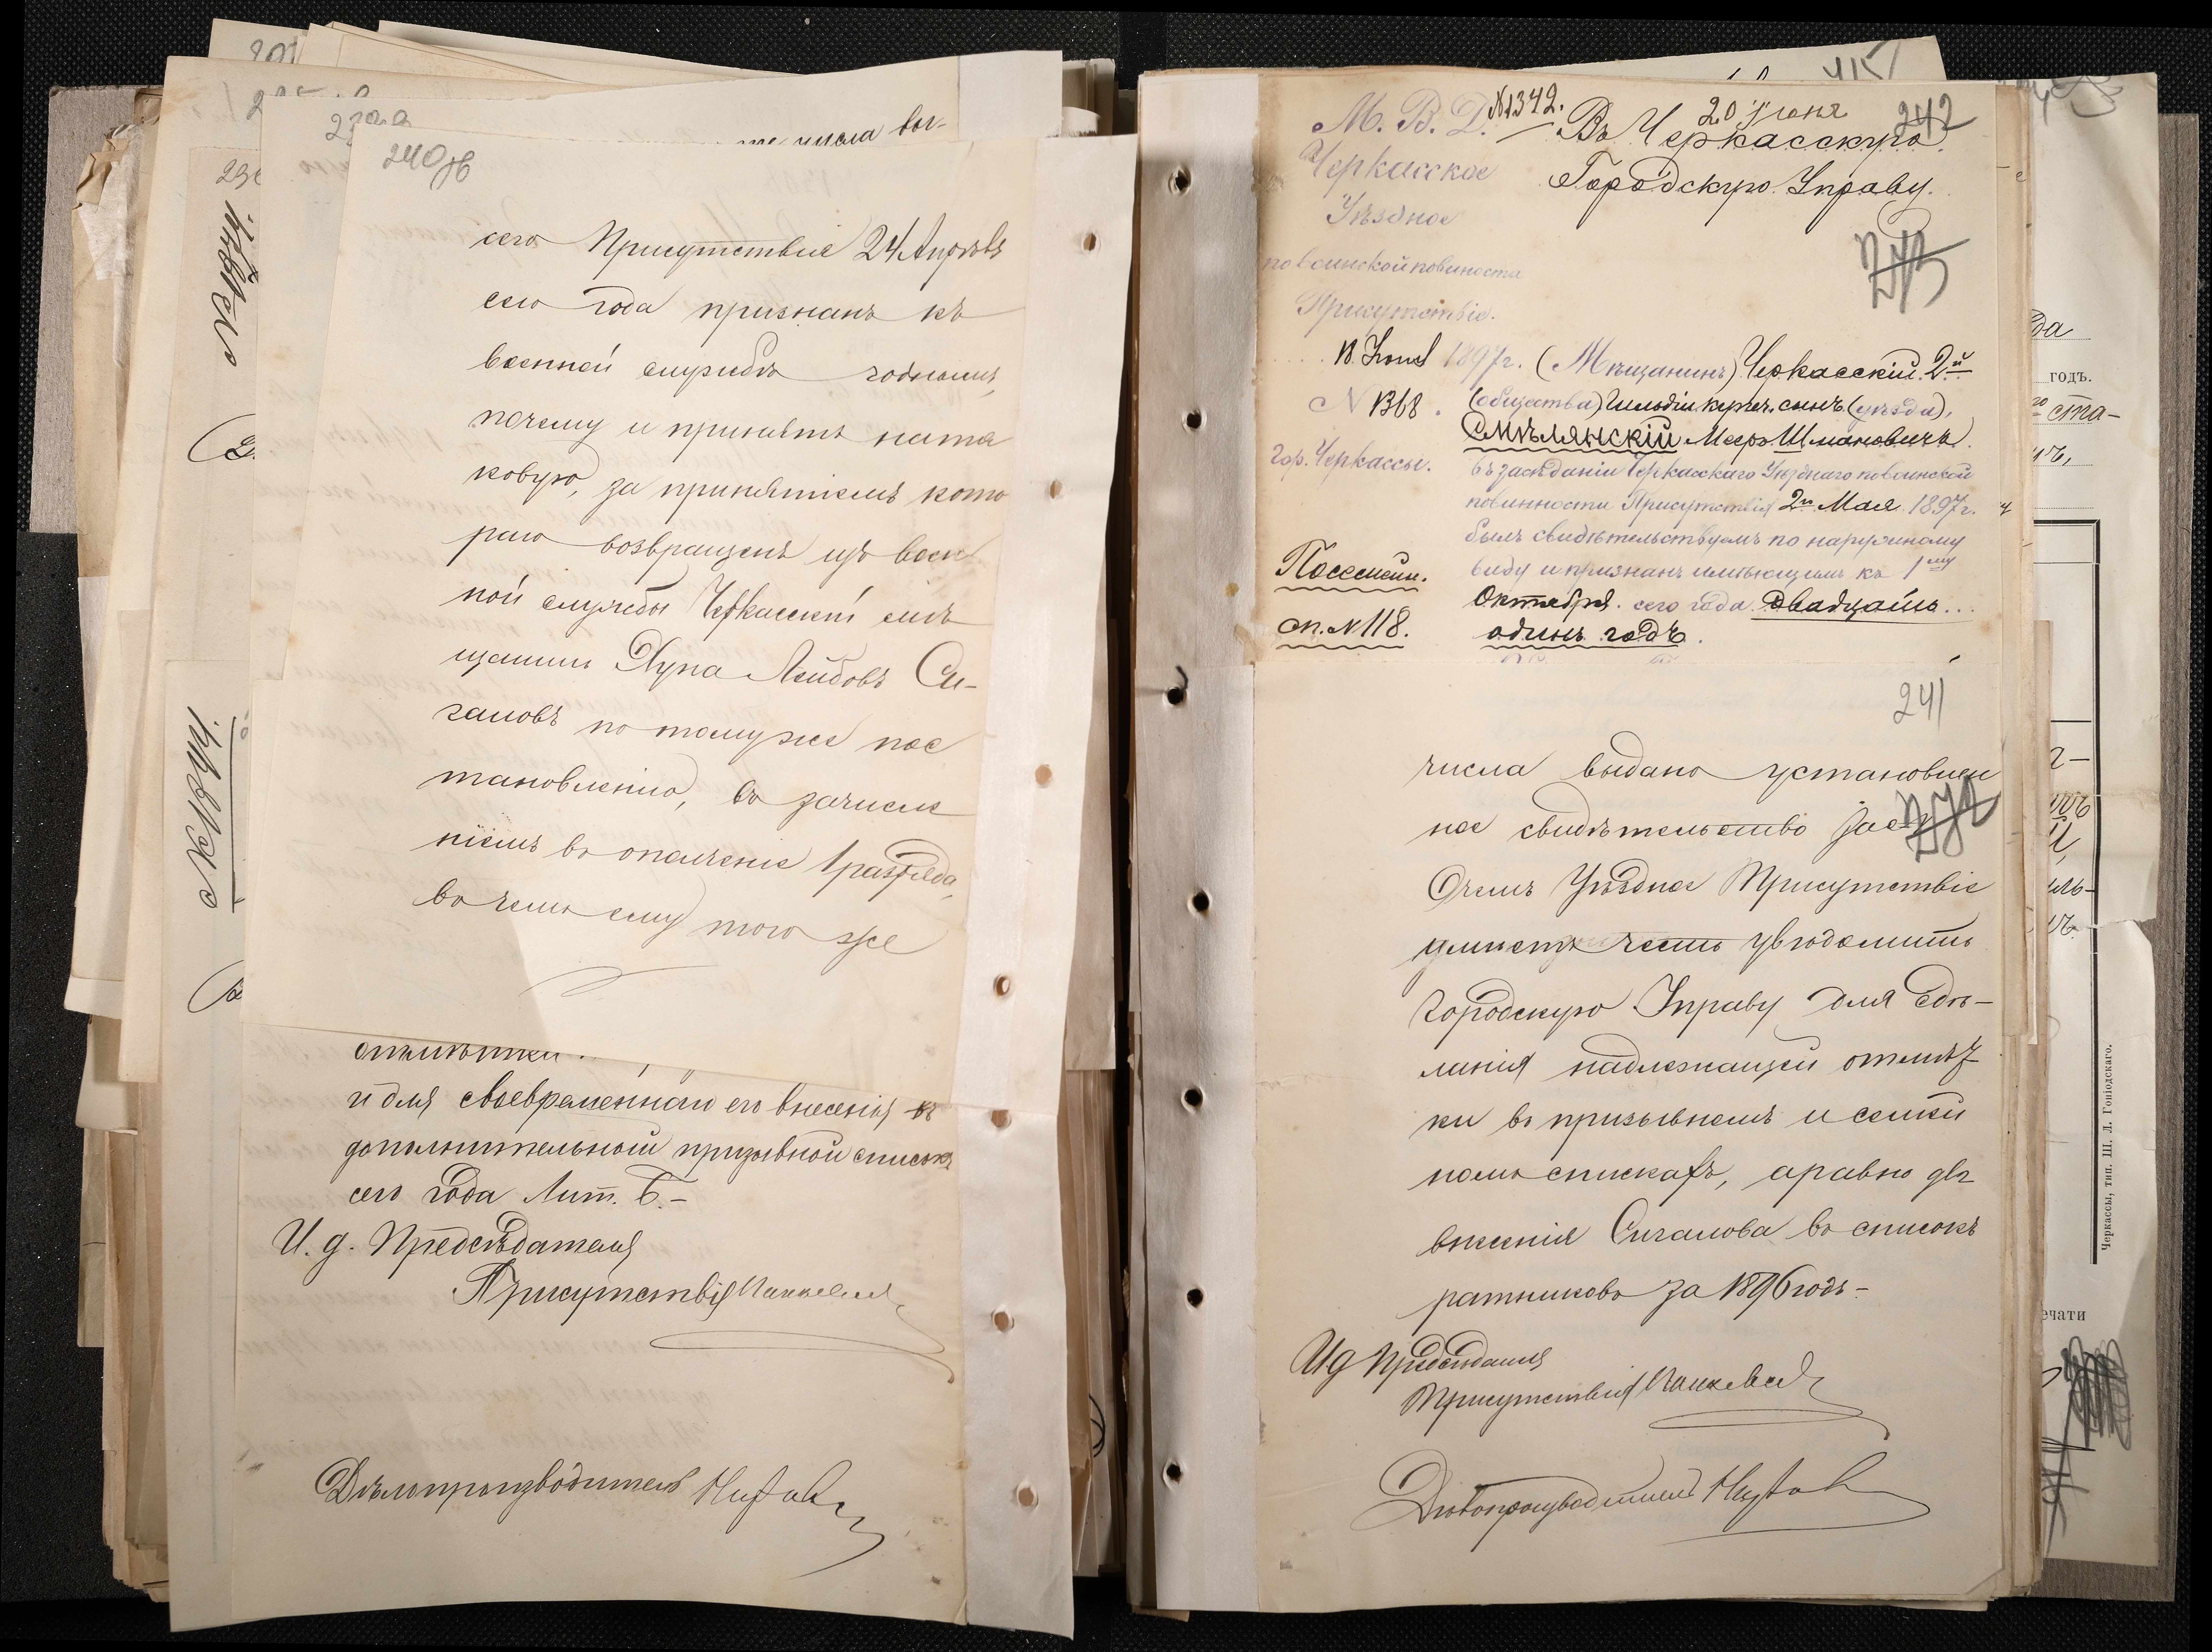 240об
сего Присутствія 24 Апрѣля
сего года признанъ къ
военной службѣ годнымъ,
почему и принятъ на та
ковую, за принятіемъ кото
раго возвращенъ изъ воен
ной службы Черкасскій мѣ
щанинъ Дупа Лейбовъ Си-
галовъ по тому же пос
тановленію, съ зачисле
ніемъ въ ополченіе 1 разряда,
въ чемъ ему того же
отмѣтки.
и для своевременнаго его внесенія въ
дополнительной призывной списокъ
сего года Лит. Б.-
И. д. Предсѣдателя
Присутствія
Дѣлопроизводитель
М. В. Д. №1342.
20 Іюня
242
Въ Черкасскую
Городскую Управу.
Черкасское
Уѣздное
по воинской повиности
Присутствіе.
18 Іюня 1897г.
N 1368.
гор. Черкассы.
Посемейн.
сп. N 118.
(Мѣщанинъ) Черкасскій 2й
(общества) гильдіи купеч. сынъ (уѣзда),
Смѣлянскій Мееръ Шмановичъ
въ засѣданіи Черкасскаго Уѣзднаго по воинской
повинности Присутствія 2го Мая 1897г.
былъ свидѣтельствуемъ по наружному
виду и признанъ имѣющимъ къ 1му
Октября сего года двадцать
одинъ годъ.
241
числа выдано установлен
ное свидѣтельство
О чемъ Уѣздное Присутствіе
имѣетъ честь увѣдомить
Городскую Управу для сдѣ-
ланія надлежащей отмѣт
ки въ призывномъ и семей
номъ спискахъ, а равно для
внесенія Сигалова въ списокъ
ратниковъ за 1896 годъ-
И д Предсѣдателя
Присутствія
Дѣлопроизводитель
№1344.
годъ.
Черкассы, тип. Ш. Л. Гоніодскаго.